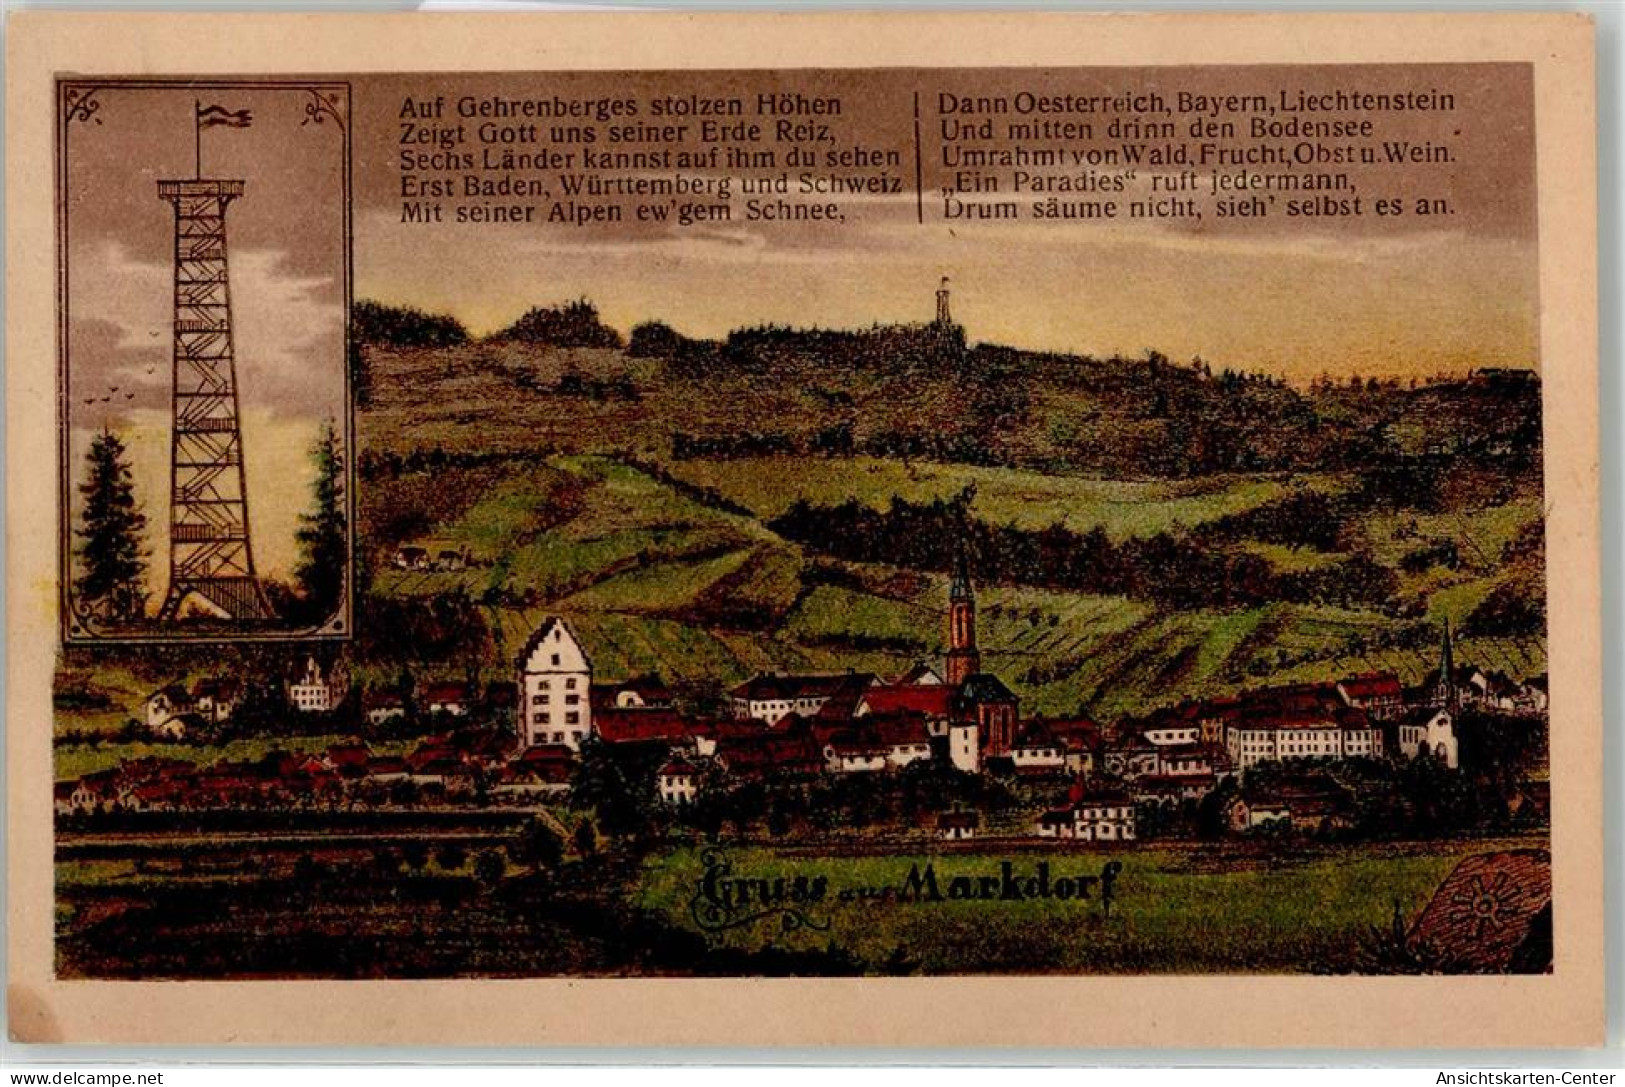 Auf Gehrenberges stolzen Höhen
Zeigt Gott uns seiner Erde Reiz,
Sechs Länder kannst auf ihm du sehen
Erst Baden, Württemberg und Schweiz
Mit seiner Alpen ew'gem Schnee,
Dann Oesterreich, Bayern, Liechtenstein
Und mitten drinn den Bodensee
Umrahmt von Wald, Frucht, Obst u. Wein.
„Ein Paradies“ ruft jedermann,
Drum säume nicht, sieh' selbst es an.
Gruss aus Markdorf
delcampe.net
Ansichtskarten-Center